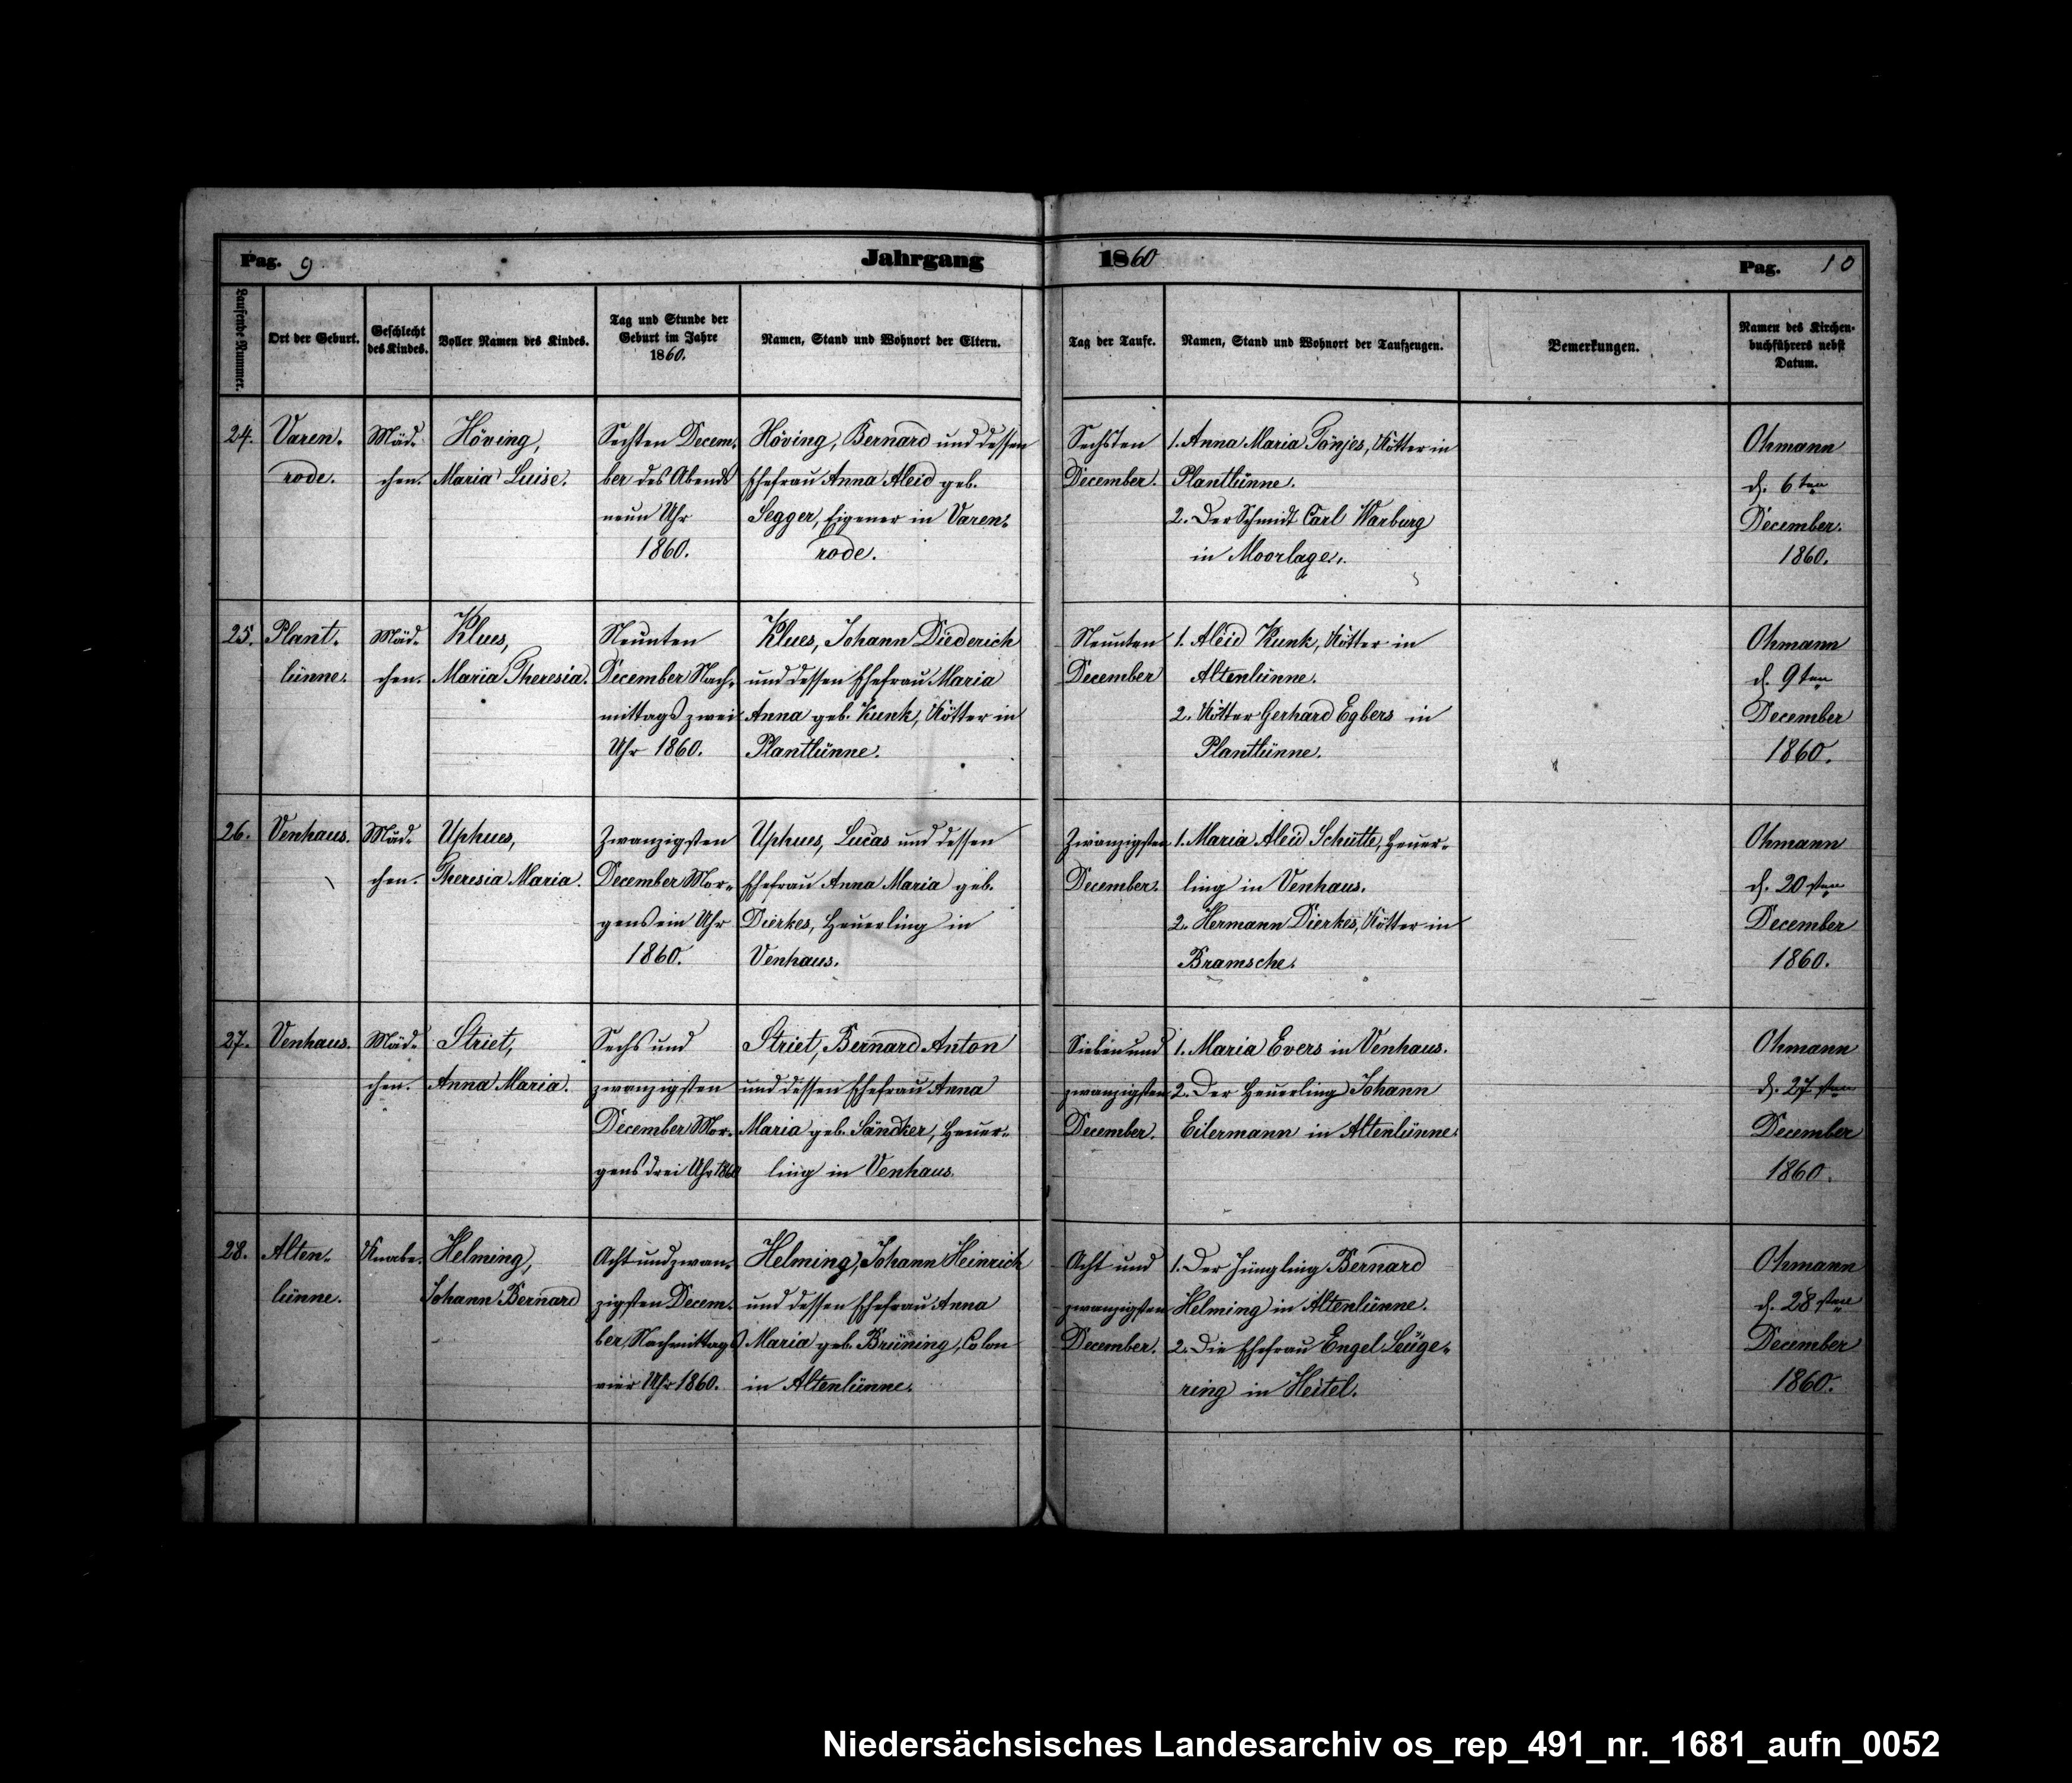 Pag. 9
Jahrgang 1860
Pag. 10
Laufende Nummer.
Ort der Geburt.
Geschlecht
des Kindes.
Voller Namen des Kindes.
Tag und Stunde der
Geburt im Jahre
1860.
Namen, Stand und Wohnort der Eltern.
Tag der Taufe.
Namen, Stand und Wohnort der Taufzeugen.
Bemerkungen.
Namen des Kirchen-
buchführers nebst
Datum.
24.
Varen-
rode.
Mäd-
chen.
Höving,
Maria Luise.
Sechsten Decem-
ber des Abends
neun Uhr
1860.
Höving, Bernard und dessen
Ehefrau Anna Aleid geb.
Segger, Eigener in Varen-
rode.
Sechsten
December.
1. Anna Maria Tönjes, Kötter in
Plantlünne.
2. Der Schmidt Carl Warburg
in Moorlage.
Ohmann
d. 6ten
December.
1860.
25.
Plant-
lünne.
Mäd-
chen.
Klues,
Maria Theresia.
Neunten
December Nach-
mittags zwei
Uhr 1860.
Klues, Johann Diederich
und dessen Ehefrau Maria
Anna geb. Kunk, Kötter in
Plantlünne.
Neunten
December
1. Aleid Kunk, Kötter in
Altenlünne.
2. Kötter Gerhard Egbers in
Plantlünne.
Ohmann
d. 9ten
December
1860.
26.
Venhaus.
Mäd-
chen.
Uphues,
Theresia Maria.
Zwanzigsten
December Mor-
gens ein Uhr
1860.
Uphues, Lucas und dessen
Ehefrau Anna Maria geb.
Dierkes, Heuerling in
Venhaus.
Zwanzigsten
December.
1. Maria Aleid Schütte, Heuer-
ling in Venhaus.
2. Hermann Dierkes, Kötter in
Bramsche.
Ohmann
d. 20sten
December
1860.
27.
Venhaus.
Mäd-
chen.
Striet,
Anna Maria.
Sechs und
zwanzigsten
December Mor-
gens drei Uhr 1860
Striet, Bernard Anton
und dessen Ehefrau Anna
Maria geb. Sändker, Heuer-
ling in Venhaus.
Sieben und
zwanzigsten
December.
1. Maria Evers in Venhaus.
2. Der Heuerling Johann
Eilermann in Altenlünne.
Ohmann
d. 27sten
December
1860.
28.
Alten-
lünne.
Knabe.
Helming,
Johann Bernard
Acht und zwan-
zigsten Decem-
ber, Nachmittags
vier Uhr 1860.
Helming, Johann Heinrich
und dessen Ehefrau Anna
Maria geb. Brüning, Colon
in Altenlünne.
Acht und
zwanzigsten
December.
1. Der Jüngling Bernard
Helming in Altenlünne.
2. Die Ehefrau Engel Lüge-
ring in Heitel.
Ohmann
d. 28sten
December
1860.
Niedersächsisches Landesarchiv os_rep_491_nr._1681_aufn_0052